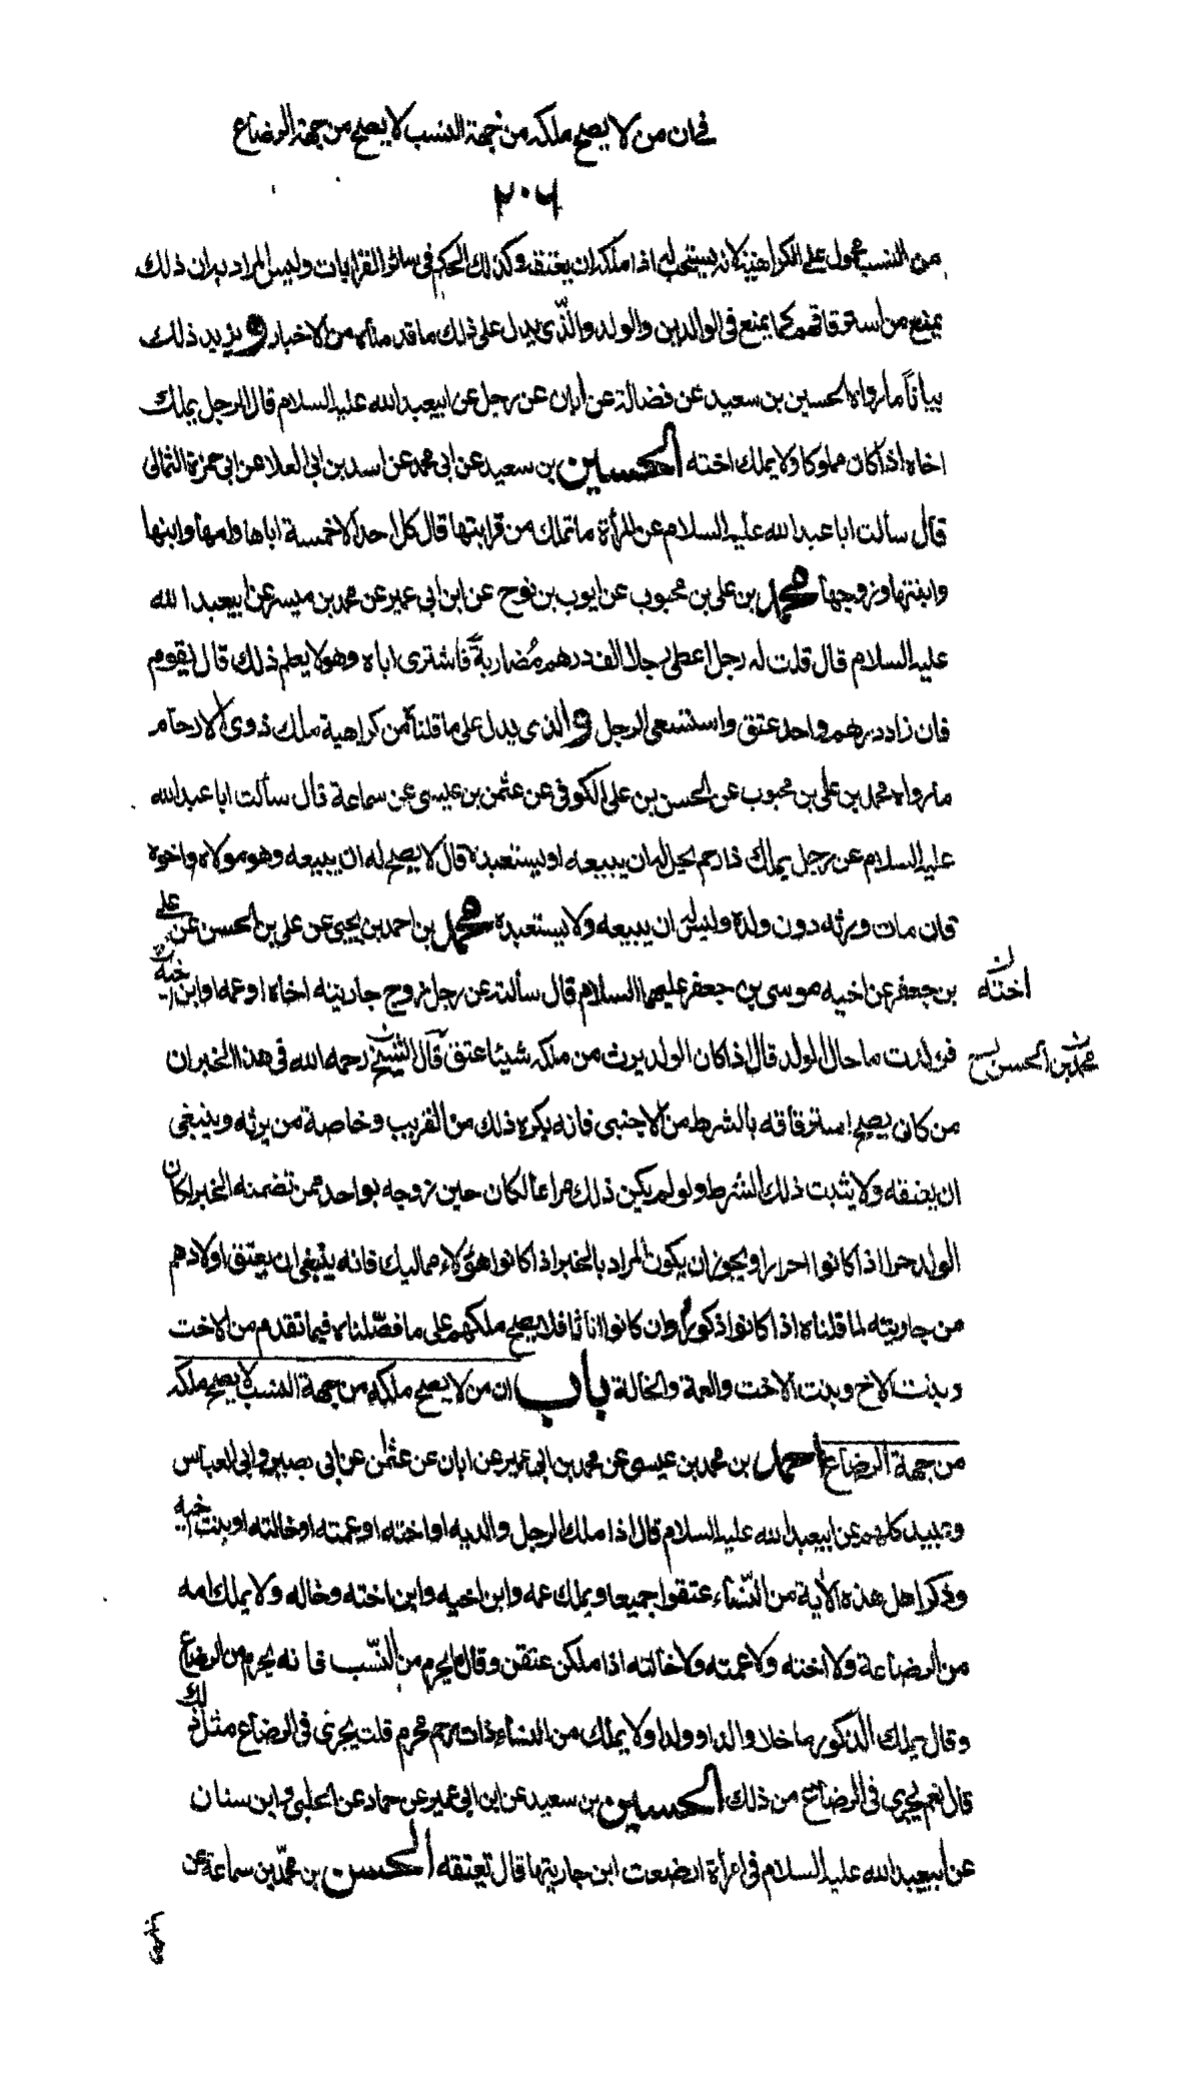 في ان من لا يصح ملكه من جهة النسب لا يصح من جهة الرضاع
٢٠٦
من النسب محمول على الكراهية لانه يستحب له اذا ملكه ان يعتقه وكذلك الحكم في سائر القرابات وليس المراد به ان ذلك
يمنع من استرقاقهم كما يمنع في الوالدين والولد والذي يدل على ذلك ما قدمناه من الاخبار ويزيد ذلك
بيانا ما رواه الحسين بن سعيد عن فضالة عن ابان عن رجل عن ابيعبد الله عليه السلام قال الرجل يملك
اخاه اذا كان مملوكا ولا يملك اخته الحسين بن سعيد عن ابى محمد عن اسد بن ابي العلا عن ابي حمزة الثمالى
قال سألت ابا عبد الله عليه السلام عن المرأة ما تملك من قرابتها قال كل احد الا خمسة اباها وامها وابنها
وابنتها وزوجها محمد بن على بن محبوب عن ايوب بن نوح عن ابن ابي عمير عن محمد بن ميسر عن ابيعبد الله
عليه السلام قال قلت له رجل اعطى رجلا الف درهم مُضاربة فاشترى اباه وهو لا يعلم ذلك قال يقوم
فان زاد درهم واحد عتق واستسعى الرجل والذى يدل على ما قلناه من كراهية ملك ذوى الارحام
ما رواه محمد بن على بن محبوب عن الحسن بن على الكوفى عن عثمن بن عيسى عن سماعة قال سألت ابا عبد الله
عليه السلام عن رجل يملك ذا رحم يحل له ان يبيعه او يستعبده قال لا يصلح له ان يبيعه وهو مولاه واخوه
فان مات ورثه دون ولده وليس له ان يبيعه ولا يستعبده محمد بن احمد بن يحيى عن على بن الحسن عن على
بن جعفر عن اخيه موسى بن جعفر عليهما السلام قال سألته عن رجل زوج جاريته اخاه او عمه او ابن اخيه
اخته ن
فولدت ما حال الولد قال اذا كان الولد يرث من ملكه شيئا عتق قال الشيخ رحمه الله في هذا الخبر ان
محمد بن الحسن
من كان يصح استرقاقه بالشرط من الاجنبى فانه يكره ذلك من القريب وخاصة من يرثه وينبغي
ان يعتقه ولا يثبت ذلك الشرط ولو لم يكن ذلك مراعا لكان حين زوجه بواحد ممن تضمنه الخبر كان
الولد حرا اذا كانوا احرارا ويجوز ان يكون المراد بالخبر اذا كانوا هؤلاء مماليك فانه ينبغي ان يعتق اولادهم
من جاريته لما قلناه اذا كانوا ذكورا وان كانوا اناثا فلا يصح ملكهم على ما فصّلناه فيما تقدم من الاخت
وبنت الاخ وبنت الاخت والعمة والخالة باب ان من لا يصح ملكه من جهة النسب لا يصح ملكه
من جهة الرضاع احمد بن محمد بن عيسى عن محمد بن ابي عمير عن ابان عن عثمن عن ابى بصير وابي العباس
وعبيد كلهم عن ابيعبد الله عليه السلام قال اذا ملك الرجل والديه او اخته او عمته او خالته او بنت اخيه
وذكر اهل هذه الآية من النّساء عتقوا جميعا ويملك عمه وابن اخيه وابن اخته وخاله ولا يملك امه
من الرضاعة ولا اخته ولا عمته ولا خالته اذا ملكن عتقن وقال ما يحرم من النّسب فانه يحرم من الرضاع
وقال يملك الذكور ما خلا والدا وولدا ولا يملك من النساء ذات رحم محرم قلت يجرى في الرضاع مثل ذلك
قال نعم يجري في الرضاع من ذلك الحسين بن سعيد عن ابن ابي عمير عن حماد عن الحلبي وابن سنان
عن ابيعبد الله عليه السلام في امرأة ارضعت ابن جاريتها قال تعتقه الحسن بن محمّد بن سماعة عن